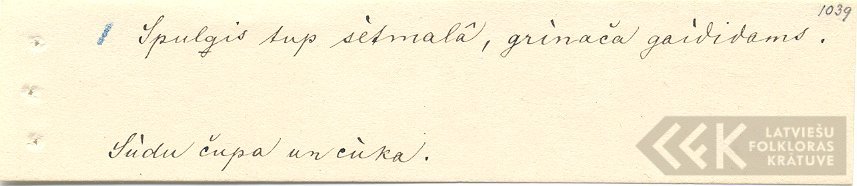 1039
Spulģis tup sètmalâ, grìnača gaìdidams.
Sùdu čupa un cùka.
LATVIEŠU
FOLKLORAS
KRĀTUVE